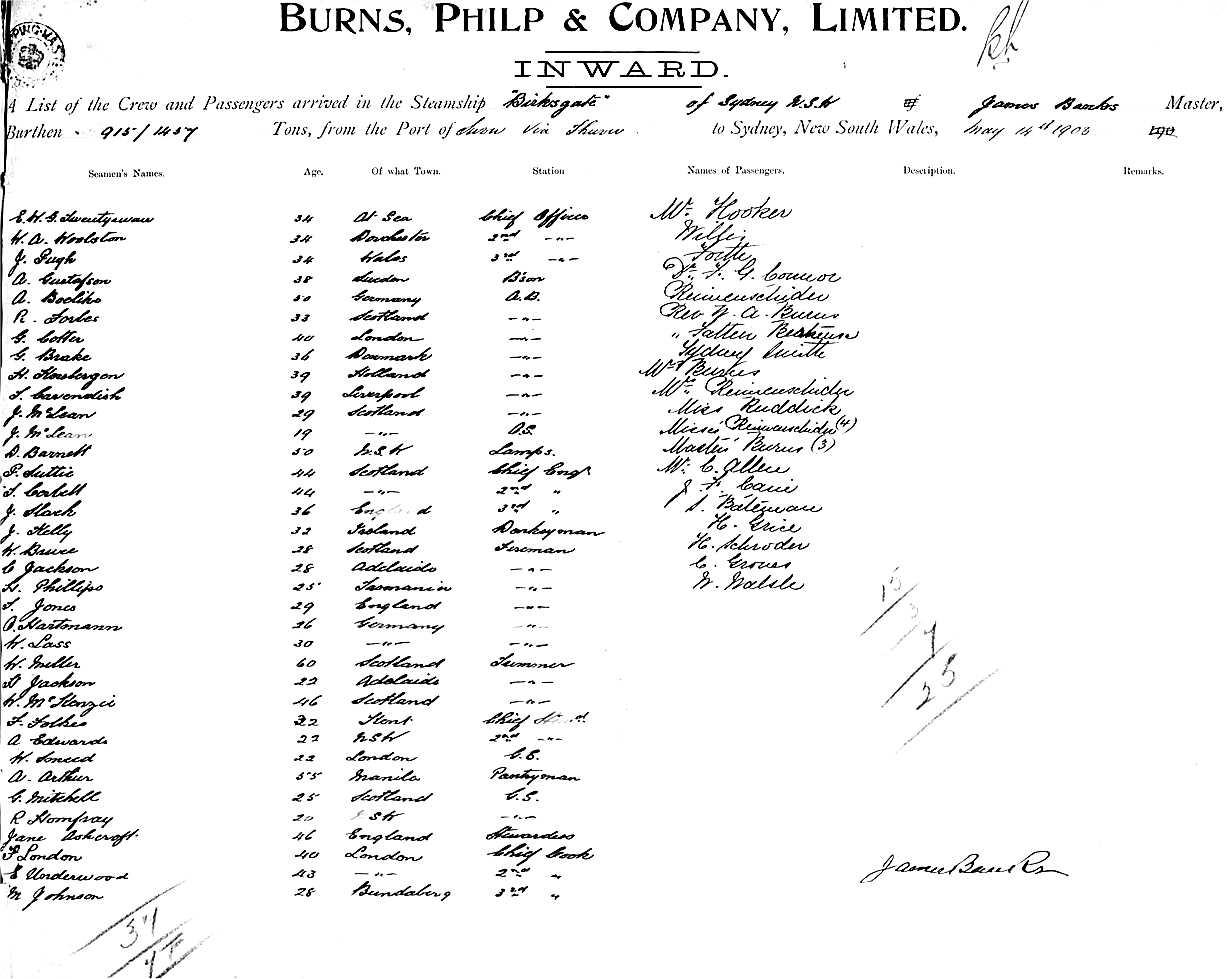 BURNS, PHILP & COMPANY, LIMITED.
INWARD.
A List of the Crew and Passengers arrived in the Steamship "Birksgate" of Sydney N.S.W James Banks Master,
Burthen 915/1457 Tons, from the Port of via to Sydney, New South Wales, May 14th 1903
Seamen's Names. Age. Of what Town. Station Names of Passengers. Description. Remarks.
E.W.G. Twentyman 34 At Sea Chief Officer Mr. Hooker
W. A. Woolston 34 Dorchester 2nd -"-
J. Pugh 34 Wales 3rd -"-
A. Gustafson 38 Sweden B'son Dr. F. G. Connor
A. 50 Germany A.B. Reimenschider
R. Forbes 33 Scotland -"- Rev W. A. Burns
G. Cotter 40 London -"- "
G. Brake 36 Denmark -"- Sydney Smith
H. 39 Holland -"- Mrs Burns
T. Cavendish 39 Liverpool -"- Mrs. Reimenschider
J. McLean 29 Scotland -"- Miss Ruddick
J. McLean 19 -"- O.S. Misses Reimenschider (4)
D. Barnett 50 N.S.W Lamps. Masters Burns (3)
P. Suttie 44 Scotland Chief Engr Mr. C. Allen
T. Corbett 44 -"- 2nd " J. F.
J. Slack 36 England 3rd " S. Bateman
J. Kelly 32 Ireland Donkeyman H. Grice
W. Bruce 28 Scotland Fireman H. Schroder
C Jackson 28 Adelaide -"- C. Groves
H. Phillips 25 Tasmania -"- W. Walsh
T. Jones 29 England -"-
O. Hartmann 26 Germany -"-
W. Lass 30 -"- -"-
W. Miller 60 Scotland Trimmer
D Jackson 22 Adelaide -"-
W. McKenzie 46 Scotland -"-
F. Folkes 22 Kent Chief Stewd.
A Edwards 22 N.S.W 2nd -"-
W. Sneed 22 London G.S.
A. Arthur 55 Manila Pantryman
G. Mitchell 25 Scotland G.S.
R Homfray 20 N.S.W -"-
Jane Ashcroft 46 England Stewardess
F London 40 London Chief Cook
E Underwood 43 -"- 2nd "
M Johnson 28 Bundaberg 3rd "
James Banks